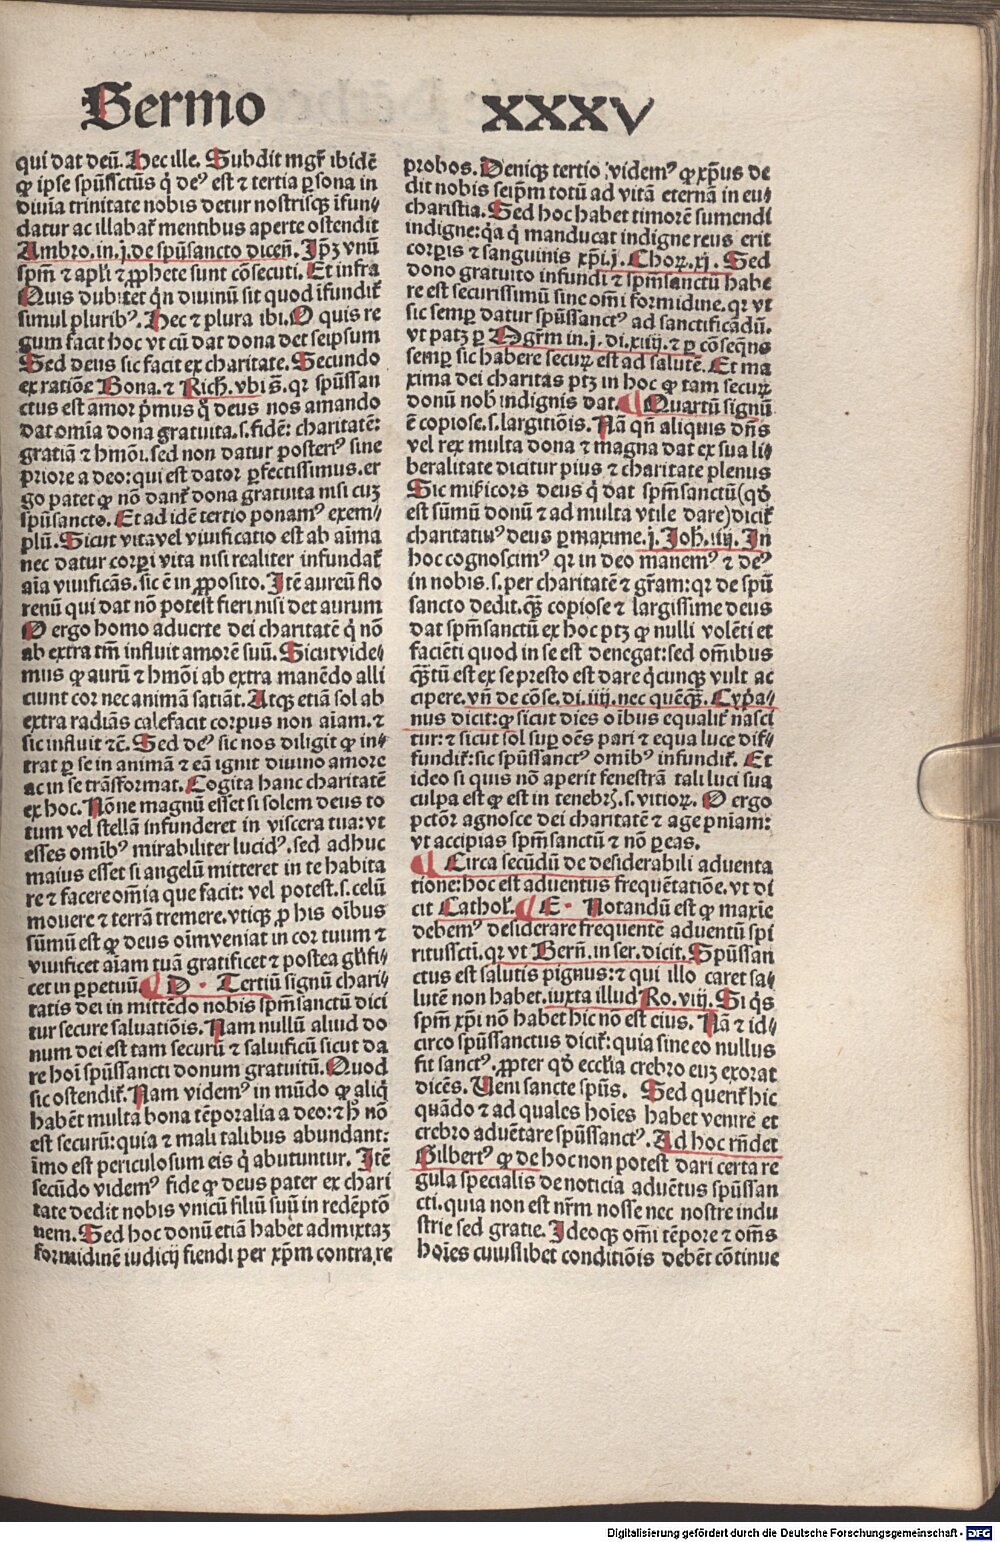 Sermo XXXV
qui dat deū. Hec ille. Subdit mgr̄ ibidē
ꝙ ipse spūssctūs q̇ deꝰ est ⁊ tertia ꝑsona in
diuīa trinitate nobis detur nostrisqꝫ īfun⸗
datur ac illabat᷑ mentibus aperte ostendit
Ambro. in. j. de spūsancto dicen̄. Ipꝫ vnū
spm̄ ⁊ apl̓i ⁊ ꝓphete sunt cōsecuti. Et infra
Quis dubitet qn̄ diuinū sit quod īfundit᷑
simul pluribꝰ. Hec ⁊ plura ibi. O quis re
gum facit hoc vt cū dat dona det seipsum
Sed deus sic facit ex charitate. Secundo
ex ratiōe Bona. ⁊ Rich. vbi s̄. qr spūssan
ctus est amor p̄mus q̊ deus nos amando
dat omīa dona gratuita. s. fidē: charitatē:
gratiā ⁊ hmōi. sed non datur posterꝰ sine
priore a deo: qui est dator ꝑfectissimus. er
go patet ꝙ nō dant᷑ dona gratuita nisi cuꝫ
spūsancto. Et ad idē tertio ponamꝰ exem⸗
plū. Sicut vita vel viuificatio est ab aīma
nec datur corꝑi vita nisi realiter infundat᷑
aīa viuificās. sic ē in ꝓposito. Itē aureū flo
renū qui dat nō potest fieri nisi det aurum
O ergo homo aduerte dei charitatē q̇ nō
ab extra tm̄ influit amorē suū. Sicut vide⸗
mus ꝙ aurū ⁊ hmōi ab extra manēdo alli
ciunt cor nec animā satiāt. Atqꝫ etiā sol ab
extra radiās calefacit corpus non aīam. ⁊
sic influit ⁊c̄. Sed deꝰ sic nos diligit ꝙ in⸗
trat ꝑ se in animā ⁊ eā ignit diuino amore
ac in se trāsformat. Cogita hanc charitatē
ex hoc. Nōne magnū esset si solem deus to
tum vel stellā infunderet in viscera tua: vt
esses omībꝰ mirabiliter lucidꝰ. sed adhuc
maius esset si angelū mitteret in te habita
re ⁊ facere omīa que facit: vel potest. s. celū
mouere ⁊ terrā tremere. vtiqꝫ ꝓ his oībus
sūmū est ꝙ deus oīm veniat in cor tuum ⁊
viuificet aīam tuā gratificet ⁊ postea gl̓ifi⸗
cet in ꝑpetuū. ¶ D · Tertiū signū chari⸗
tatis dei in mittēdo nobis spm̄sanctū dici
tur secure saluatiōis. Nam nullū aliud do
num dei est tam securū ⁊ saluificū sicut da
re hoī spūssancti donum gratuitū. Quod
sic ostendit᷑. Nam videmꝰ in mūdo ꝙ aliq̇
habēt multa bona tēporalia a deo: ⁊ h̄ nō
est securū: quia ⁊ mali talibus abundant:
īmo est periculosum eis q̇ abutuntur. Itē
secūdo videmꝰ fide ꝙ deus pater ex chari
tate dedit nobis vnicū filiū suū in redēptō
nem. Sed hoc donū etiā habet admixtaꝫ
formidinē iudicij fiendi per xp̄m contra re
probos. Deniqꝫ tertio videmꝰ ꝙ xp̄us de
dit nobis seip̄m totū ad vitā eternā in eu⸗
charistia. Sed hoc habet timorē sumendi
indigne: qa q̇ manducat indigne reus erit
corꝑis ⁊ sanguinis xp̄i. j. Choꝝ. xj. Sed
dono gratuito infundi ⁊ spm̄sanctū habe
re est securissimū sine om̄i formidine. qr vt
sic semꝑ datur spūssanctꝰ ad sanctificādū.
vt patꝫ ꝑ Mgr̄m in. j. di. xiiij. ⁊ ꝑ cōseqn̄s
semꝑ sic habere securꝫ est ad salutē. Et ma
xima dei charitas ptꝫ in hoc ꝙ tam securꝫ
donū nob̓ indignis dat. ¶ Quartū signū
ē copiose. s. largitiōis. Nā qn̄ aliquis dn̄s
vel rex multa dona ⁊ magna dat ex sua li⸗
beralitate dicitur pius ⁊ charitate plenus
Sic mi̓icors deus q̇ dat spm̄sanctū (qd̓
est sūmū donū ⁊ ad multa vtile dare) dicit᷑
charitatiuꝰ deus ꝑmaxime. j. Joh. iiij. In
hoc cognoscimꝰ qr in deo manemꝰ ⁊ deꝰ
in nobis. s. per charitatē ⁊ gr̄am: qr de spū
sancto dedit. qꝫ copiose ⁊ largissime deus
dat spm̄sanctū ex hoc ptꝫ ꝙ nulli volēti et
faciēti quod in se est denegat: sed omībus
qꝫtū est ex se presto est dare q̇cunqꝫ vult ac
cipere. vn̄ de cōse. di. iiij. nec quēqꝫ. Cypa⸗
nus dicit: ꝙ sicut dies oībus equalit᷑ nasci
tur: ⁊ sicut sol suꝑ oēs pari ⁊ equa luce dif⸗
fundit᷑: sic spūssanctꝰ omībꝰ infundit᷑. Et
ideo si quis nō aperit fenestrā tali luci sua
culpa est ꝙ est in tenebꝭ. s. vitioꝝ. O ergo
pctōr agnosce dei charitatē ⁊ age pn̄iam:
vt accipias spm̄sanctū ⁊ nō ꝑeas.
¶ Circa secūdū de desiderabili aduenta
tione: hoc est aduentus frequētatiōe. vt di
cit Cathol̓. ¶ E · Notandū est ꝙ maxīe
debemꝰ desiderare frequentē aduentū spi
ritusscti. qr vt Bern̄. in ser. dicit. Spūssan
ctus est salutis pignus: ⁊ qui illo caret sa⸗
lutē non habet. iuxta illud Ro. viij. Si q̇s
spm̄ xp̄i nō habet hic nō est eius. Nā ⁊ id⸗
circo spūssanctus dicit᷑: quia sine eo nullus
fit sanctꝰ. ꝓpter qd̓ eccl̓ia crebro euꝫ exorat
dicēs. Ueni sancte spūs. Sed querit᷑ hic
quādo ⁊ ad quales hoīes habet venire et
crebro aduētare spūssanctꝰ. Ad hoc rn̄det
Gilbertꝰ ꝙ de hoc non potest dari certa re
gula specialis de noticia aduētus spūssan
cti. quia non est nr̄m nosse nec nostre indu
strie sed gratie. Ideoqꝫ om̄i tēpore ⁊ om̄s
hoīes cuiuslibet conditiōis debēt cōtinue
Digitalisierung gefördert durch die Deutsche Forschungsgemeinschaft - DFG